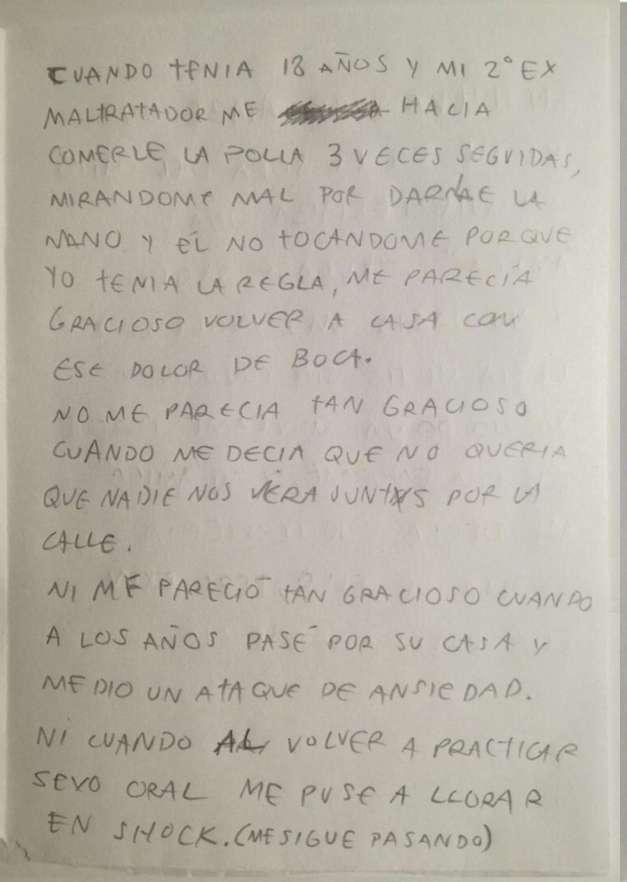 CUANDO TENIA 18 AÑOS Y MI 2º EX
MALTRATADOR ME HACIA
COMERLE LA POLLA 3 VECES SEGUIDAS,
MIRANDOME MAL POR DARME LA
MANO Y ÉL NO TOCANDOME PORQUE
YO TENIA LA REGLA, ME PARECÍA
GRACIOSO VOLVER A CASA CON
ESE DOLOR DE BOCA.
NO ME PARECIA TAN GRACIOSO
CUANDO ME DECIA QUE NO QUERIA
QUE NADIE NOS VERA JUNTXS POR LA
CALLE.
NI ME PARECIÓ TAN GRACIOSO CUANDO
A LOS AÑOS PASÉ POR SU CASA Y
ME DIO UN ATAQUE DE ANSIEDAD.
NI CUANDO AL VOLVER A PRACTICAR
SEXO ORAL ME PUSE A LLORAR
EN SHOCK. (ME SIGUE PASANDO)